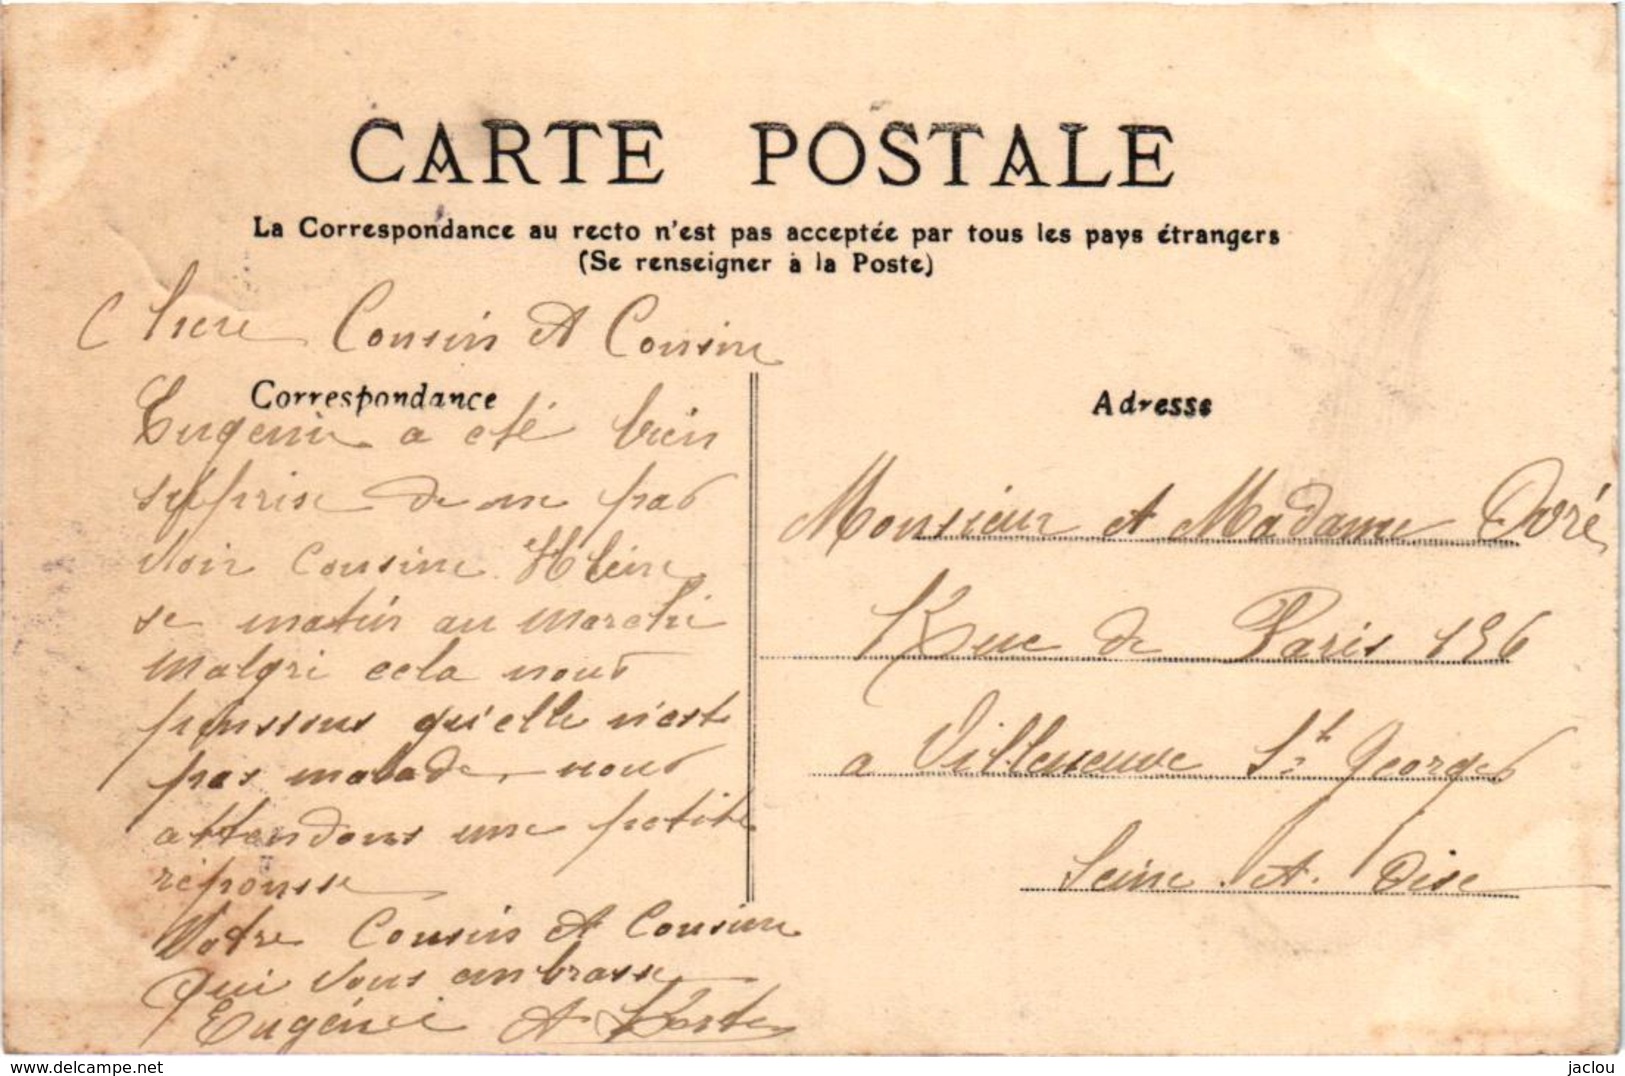 CARTE POSTALE
La Correspondance au recto n'est pas acceptée par tous les pays étrangers
(Se renseigner à la Poste)
Chere Cousin et Cousine
Correspondance
Eugenie a eté bien
surprise de ne pas
voir cousine Hleine
se matin au marché
malgré cela nous
penssons qu'elle n'est
pas malade, nous
attendons une petite
réponsse
Votre Cousin et Cousine
qui vous embrasse
Eugénie et
Adresse
Monsieur et Madame Doré
Rue de Paris 196
a Villeneuve St Georges
Seine et Oise
www.delcampe.net
jaclou